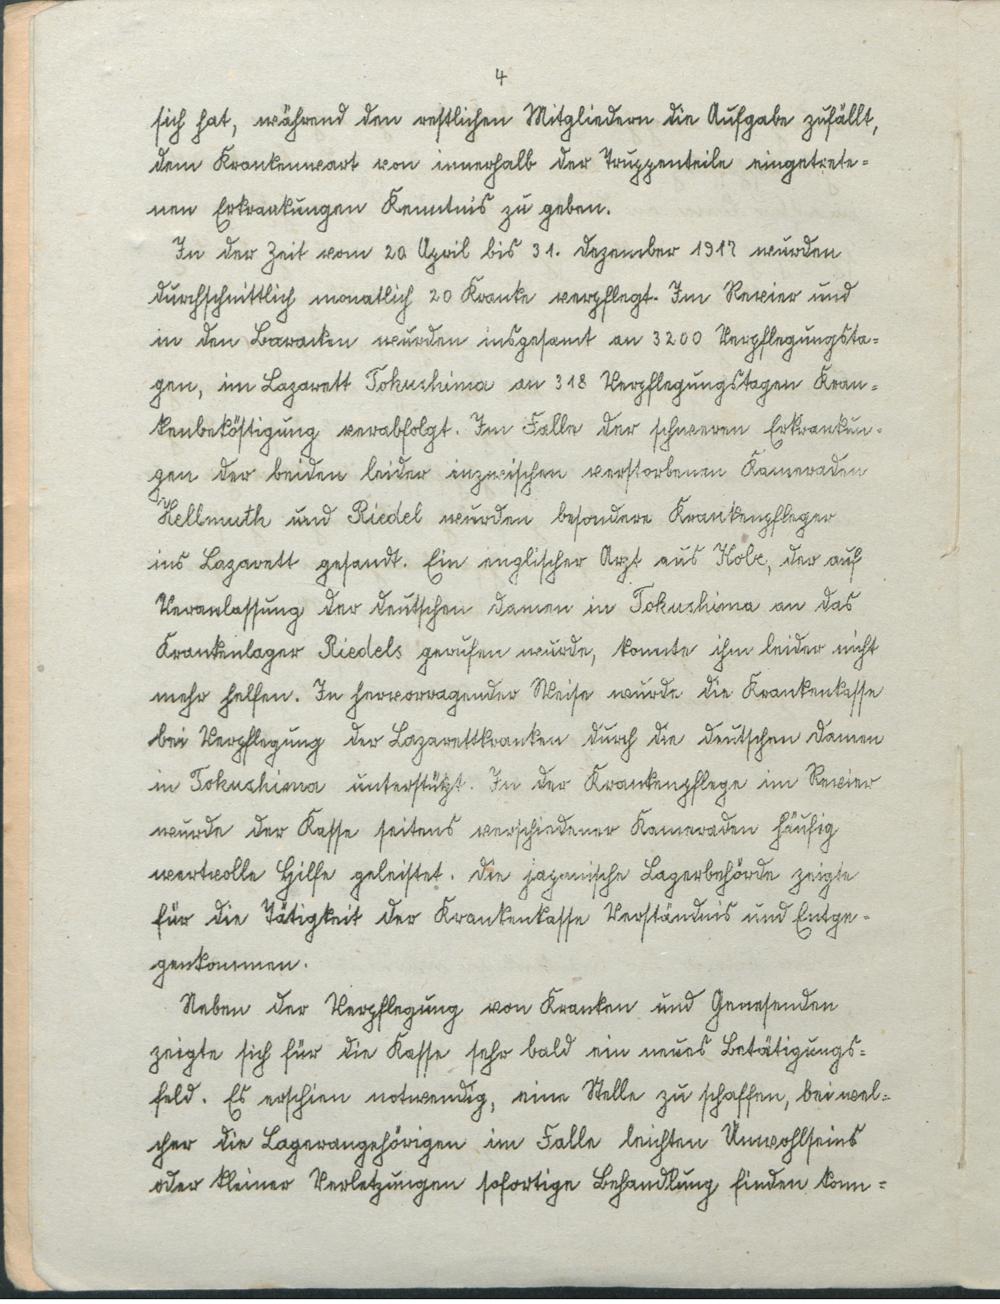 4
sich hat, während den restlichen Mitgliedern die Aufgabe zufällt,
dem Krankenwart von innerhalb der Truppenteile eingetrete=
nen Erkrankungen Kenntnis zu geben.
In der Zeit vom 20 April bis 31. Dezember 1917 wurden
durchschnittlich monatlich 20 Kranke verpflegt. Im Revier und
in den Baracken wurden insgesamt an 3200 Verpflegungsta=
gen, im Lazarett Tokushima an 318 Verpflegungstagen Kran=
kenbeköstigung verabfolgt. Im Falle der schweren Erkrankun=
gen der beiden leider inzwischen verstorbenen Kameraden
Hellmuth und Riedel wurden besondere Krankenpfleger
ins Lazarett gesandt. Ein englischer Arzt aus Kobe, der auf
Veranlassung der deutschen Damen in Tokushima an das
Krankenlager Riedels gerufen wurde, konnte ihm leider nicht
mehr helfen. In hervorragender Weise wurde die Krankenkasse
bei Verpflegung der Lazarettkranken durch die deutschen Damen
in Tokushima unterstützt. In der Krankenpflege im Revier
wurde der Kasse seitens verschiedener Kameraden häufig
wertvolle Hilfe geleistet. Die japanische Lagerbehörde zeigte
für die Tätigkeit der Krankenkasse Verständnis und Entge=
genkommen.
Neben der Verpflegung von Kranken und Genesenden
zeigte sich für die Kasse sehr bald ein neues Betätigungs=
feld. Es erschien notwendig, eine Stelle zu schaffen, bei wel=
cher die Lagerangehörigen im Falle leichten Unwohlseins
oder kleiner Verletzungen sofortige Behandlung finden konn=